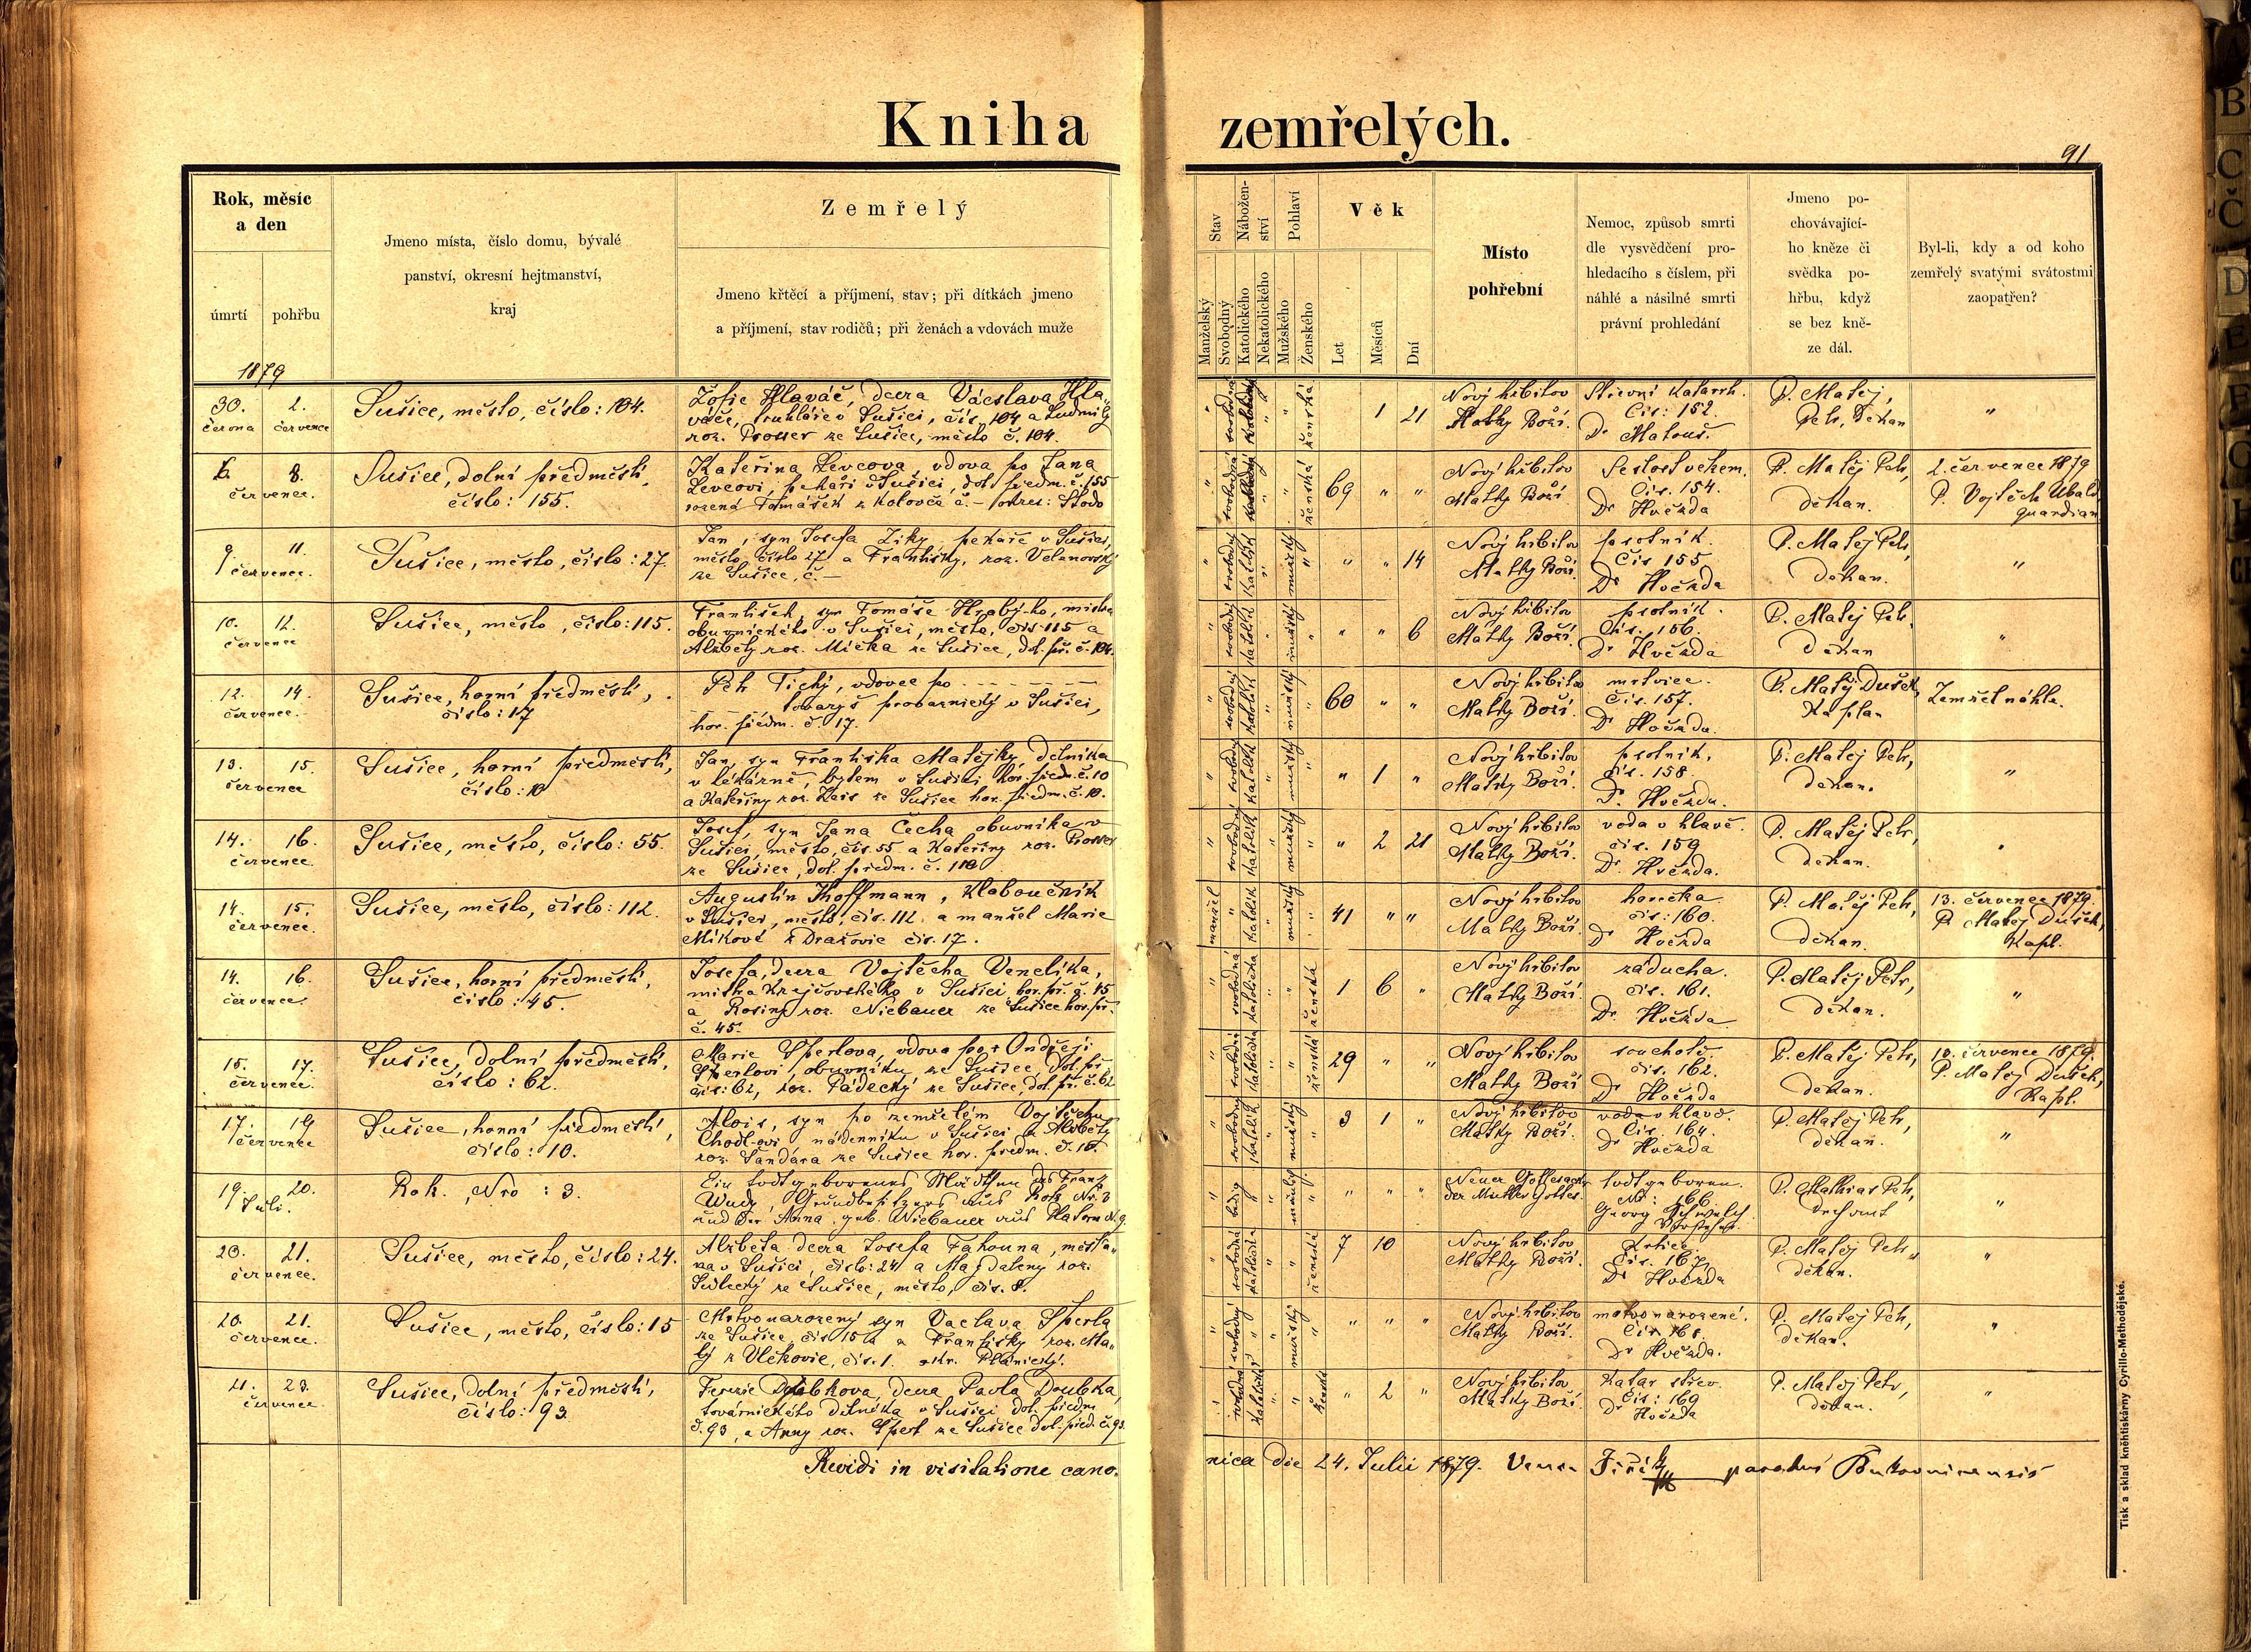 Kniha zemřelých.
91
Rok, měsíc
a den
úmrtí
pohřbu
1879
Jmeno místa, číslo domu, bývalé
panství, okresní hejtmanství,
kraj
Zemřelý
Jmeno křtěcí a příjmení, stav; při dítkách jmeno
a příjmení, stav rodičů; při ženách a vdovách muže
Stav
Nábožen-
ství
Pohlaví
Věk
Manželský
Svobodný
Katolického
Nekatolického
Mužského
Ženského
Let
Měsíců
Dní
Místo
pohřební
Nemoc, způsob smrti
dle vysvědčení pro-
hledacího s číslem, při
náhlé a násilné smrti
právní prohledání
Jmeno po-
chovávající-
ho kněze či
svědka po-
hřbu, když
se bez kně-
ze dál.
Byl-li, kdy a od koho
zemřelý svatými svátostmi
zaopatřen?
30. 2.
června července
Sušice, město, číslo: 104.
Žofie Hlaváč, dcera Vácslava Hla„
váče, truhláře v Sušici, čís. 104 a Ludmily
roz. Prosser ze Sušice, město č. 104.
svobodná
ženská
1 21
Nový hřbitov
Matky Boží.
Střevní katarrh.
Čís: 152.
Dr Matouš.
P. Matěj,
Petr, Děkan
"
6. 8.
července.
Sušice, dolní předměstí,
číslo: 155.
Kateřina Levcova, vdova po Jana
Levcovi, pekaři v Sušici, dol. předm. č. 155
rozená Tomášek z Kolovče č. – okres: Stodo
svobodná
ženská
69 " "
Nový hřbitov
Matky Boží.
Sešlost věkem.
Čís. 154.
Dr Hvězda
P. Matěj Petr,
děkan.
2. července 1879
P. Vojtěch Ubald
quardian
9. 11.
července.
Sušice, město, číslo: 27.
Jan, syn Josefa Ziky pekaře v Sušici,
město číslo 27 a Františky, roz. Velanovský
ze Sušice, č. –
svobodný
katolík
mužský
" " 14
Nový hřbitov
Matky Boží.
psotník.
Čís 155
Dr Hvězda
P. Matěj Petr,
Děkan.
"
10. 12.
července
Sušice, město, číslo: 115.
František, syn Tomáše Hrabý-ho, mistra
obuvnického v Sušici, město, čís. 115 a
Alžběty roz. Mička ze Sušice, dol. př. č. 104.
svobodný
katolík
mužský
" " 6
Nový hřbitov
Matky Boží.
psotník.
Čís. 156.
Dr Hvězda
P. Matěj Petr,
děkan
"
12. 14.
července.
Sušice, horní předměstí,
číslo: 17
Petr Tichý, vdovec po – – – –
tovaryš provaznický v Sušici,
hor. předm. č. 17.
svobodný
katolík
mužský
60 " "
Nový hřbitov
Matky Boží.
mrtvice.
Čís. 157.
Dr Hvězda.
P. Matěj Dušek,
Kaplan
Zemřel náhle.
13. 15.
července
Sušice, horní předměstí,
číslo: 10
Jan, syn Františka Matějky, dělníka
v lékárně, bytem v Sušici, hor. předm. č. 10
a Kateřiny roz. Kais ze Sušice hor. předm. č. 10.
svobodný
katolík
mužský
" 1 "
Nový hřbitov
Matky Boží.
psotník,
čís. 158.
Dr Hvězda.
P. Matěj Petr,
děkan.
"
14. 16.
července.
Sušice, město, číslo: 55.
Josef, syn Jana Čecha obuvníka v
Sušici, město, čís. 55 a Kateřiny roz. Prosser
ze Sušice, dol. předm. č. 110
svobodný
katolík
mužský
" 2 21
Nový hřbitov
Matky Boží.
voda v hlavě.
čís. 159
Dr Hvězda.
P. Matěj Petr,
děkan.
"
14. 15.
července.
Sušice, město, číslo: 112.
Augustin Hoffmann, klaboučník
v Sušici, město, čís. 112 a manžel Marie
Míkové z Dražovic čís. 17.
manžel
katolík
mužský
41 " "
Nový hřbitov
Matky Boží.
horečka
čís: 160.
Dr Hvězda
P. Matěj Petr,
děkan.
13. července 1879.
P. Matěj Dušek,
Kapl.
14. 16.
července.
Sušice, horní předměstí,
číslo: 45.
Josefa, dcera Vojtěcha Venelíka,
mistra krejčovského v Sušici hor. př. č. 45
a Rosiny roz. Niebauer ze Sušice hor. př.
č. 45.
svobodná
katolička
ženská
1 6 "
Nový hřbitov
Matky Boží.
záducha.
čís. 161.
Dr Hvězda
P. Matěj Petr,
děkan.
"
15. 17.
července.
Sušice, dolní předměstí,
číslo: 62.
Marie Šperlova, vdova po + Ondřeji
Šperlovi, obuvníku ze Sušice, dol. př.
čís: 62, roz. Pádecký ze Sušice, dol. př. č. 62
svobodná
katolička
ženská
29 " "
Nový hřbitov
Matky Boží
souchotě.
čís. 162.
Dr Hvězda
P. Matěj Petr,
děkan.
10. července 1879.
P. Matěj Dušek,
Kapl.
17. 19
července
Sušice, horní předměstí,
číslo: 10.
Alois, syn po zemřelém Vojtěchu
Chodl-ovi nádenníku v Sušici a Alžběty
roz. Šandára ze Sušice hor. předm. č. 10.
svobodný
katolík
mužský
3 1 "
Nový hřbitov
Matky Boží.
voda v hlavě.
Čís. 164.
Dr Hvězda
P. Matěj Petr,
děkan.
"
19. 20.
Juli.
Rok, Nro: 3.
Ein todtgeborenes Mädchen des Franz
Wudy, Grundbesitzers aus Rok Nr. 3
und der Anna geb. Niebauer aus
ledig
" " "
Neuer Gottesacker
der Mutter Gottes.
todtgeboren.
Nr: 166
Georg
P. Mathias Petr,
Dechant
"
20. 21.
července.
Sušice, město, číslo: 24.
Alžběta dcera Josefa Fahouna, měšťa„
na v Sušici, číslo: 24 a Magdaleny roz.
Sedlecký ze Sušice, město, čís. 8.
svobodná
katolička
ženská
7 10
Nový hřbitov
Matky Boží.
Čís. 167,
Dr Hvězda
P. Matěj Petr,
děkan.
"
20. 21.
července.
Sušice, město, číslo: 15
Mrtvonarozený syn Vaclava Šperla
ze Sušice, čís 15 a Františky roz. Ma„
lý z Vlčkovic, čís. 1. okr. Plánický.
svobodný
mužský
" " "
Nový hřbitov
Matky Boží.
mrtvonarozené.
Čís 168.
Dr Hvězda.
P. Matěj Petr,
děkan.
"
21. 23.
července.
Sušice, dolní předměstí,
číslo: 93
Terezie Doubkova, dcera Pavla Doubka,
továrnického dělníka v Sušici dol. předm
č. 93, a Anny roz. Šperl ze Sušice dol. před. č. 93
svobodná
katolička
ženská
" 2 "
Nový hřbitov
Matky Boží.
Katar střev.
Čís: 169
Dr Hvězda
P. Matěj Petr,
děkan.
"
Revidi in visitatione cano-
nica die 24. Julii 1879. Jiřík
Tisk a sklad knihtiskárny Cyrillo-Methodějské.
A
B
C
Č
D
E